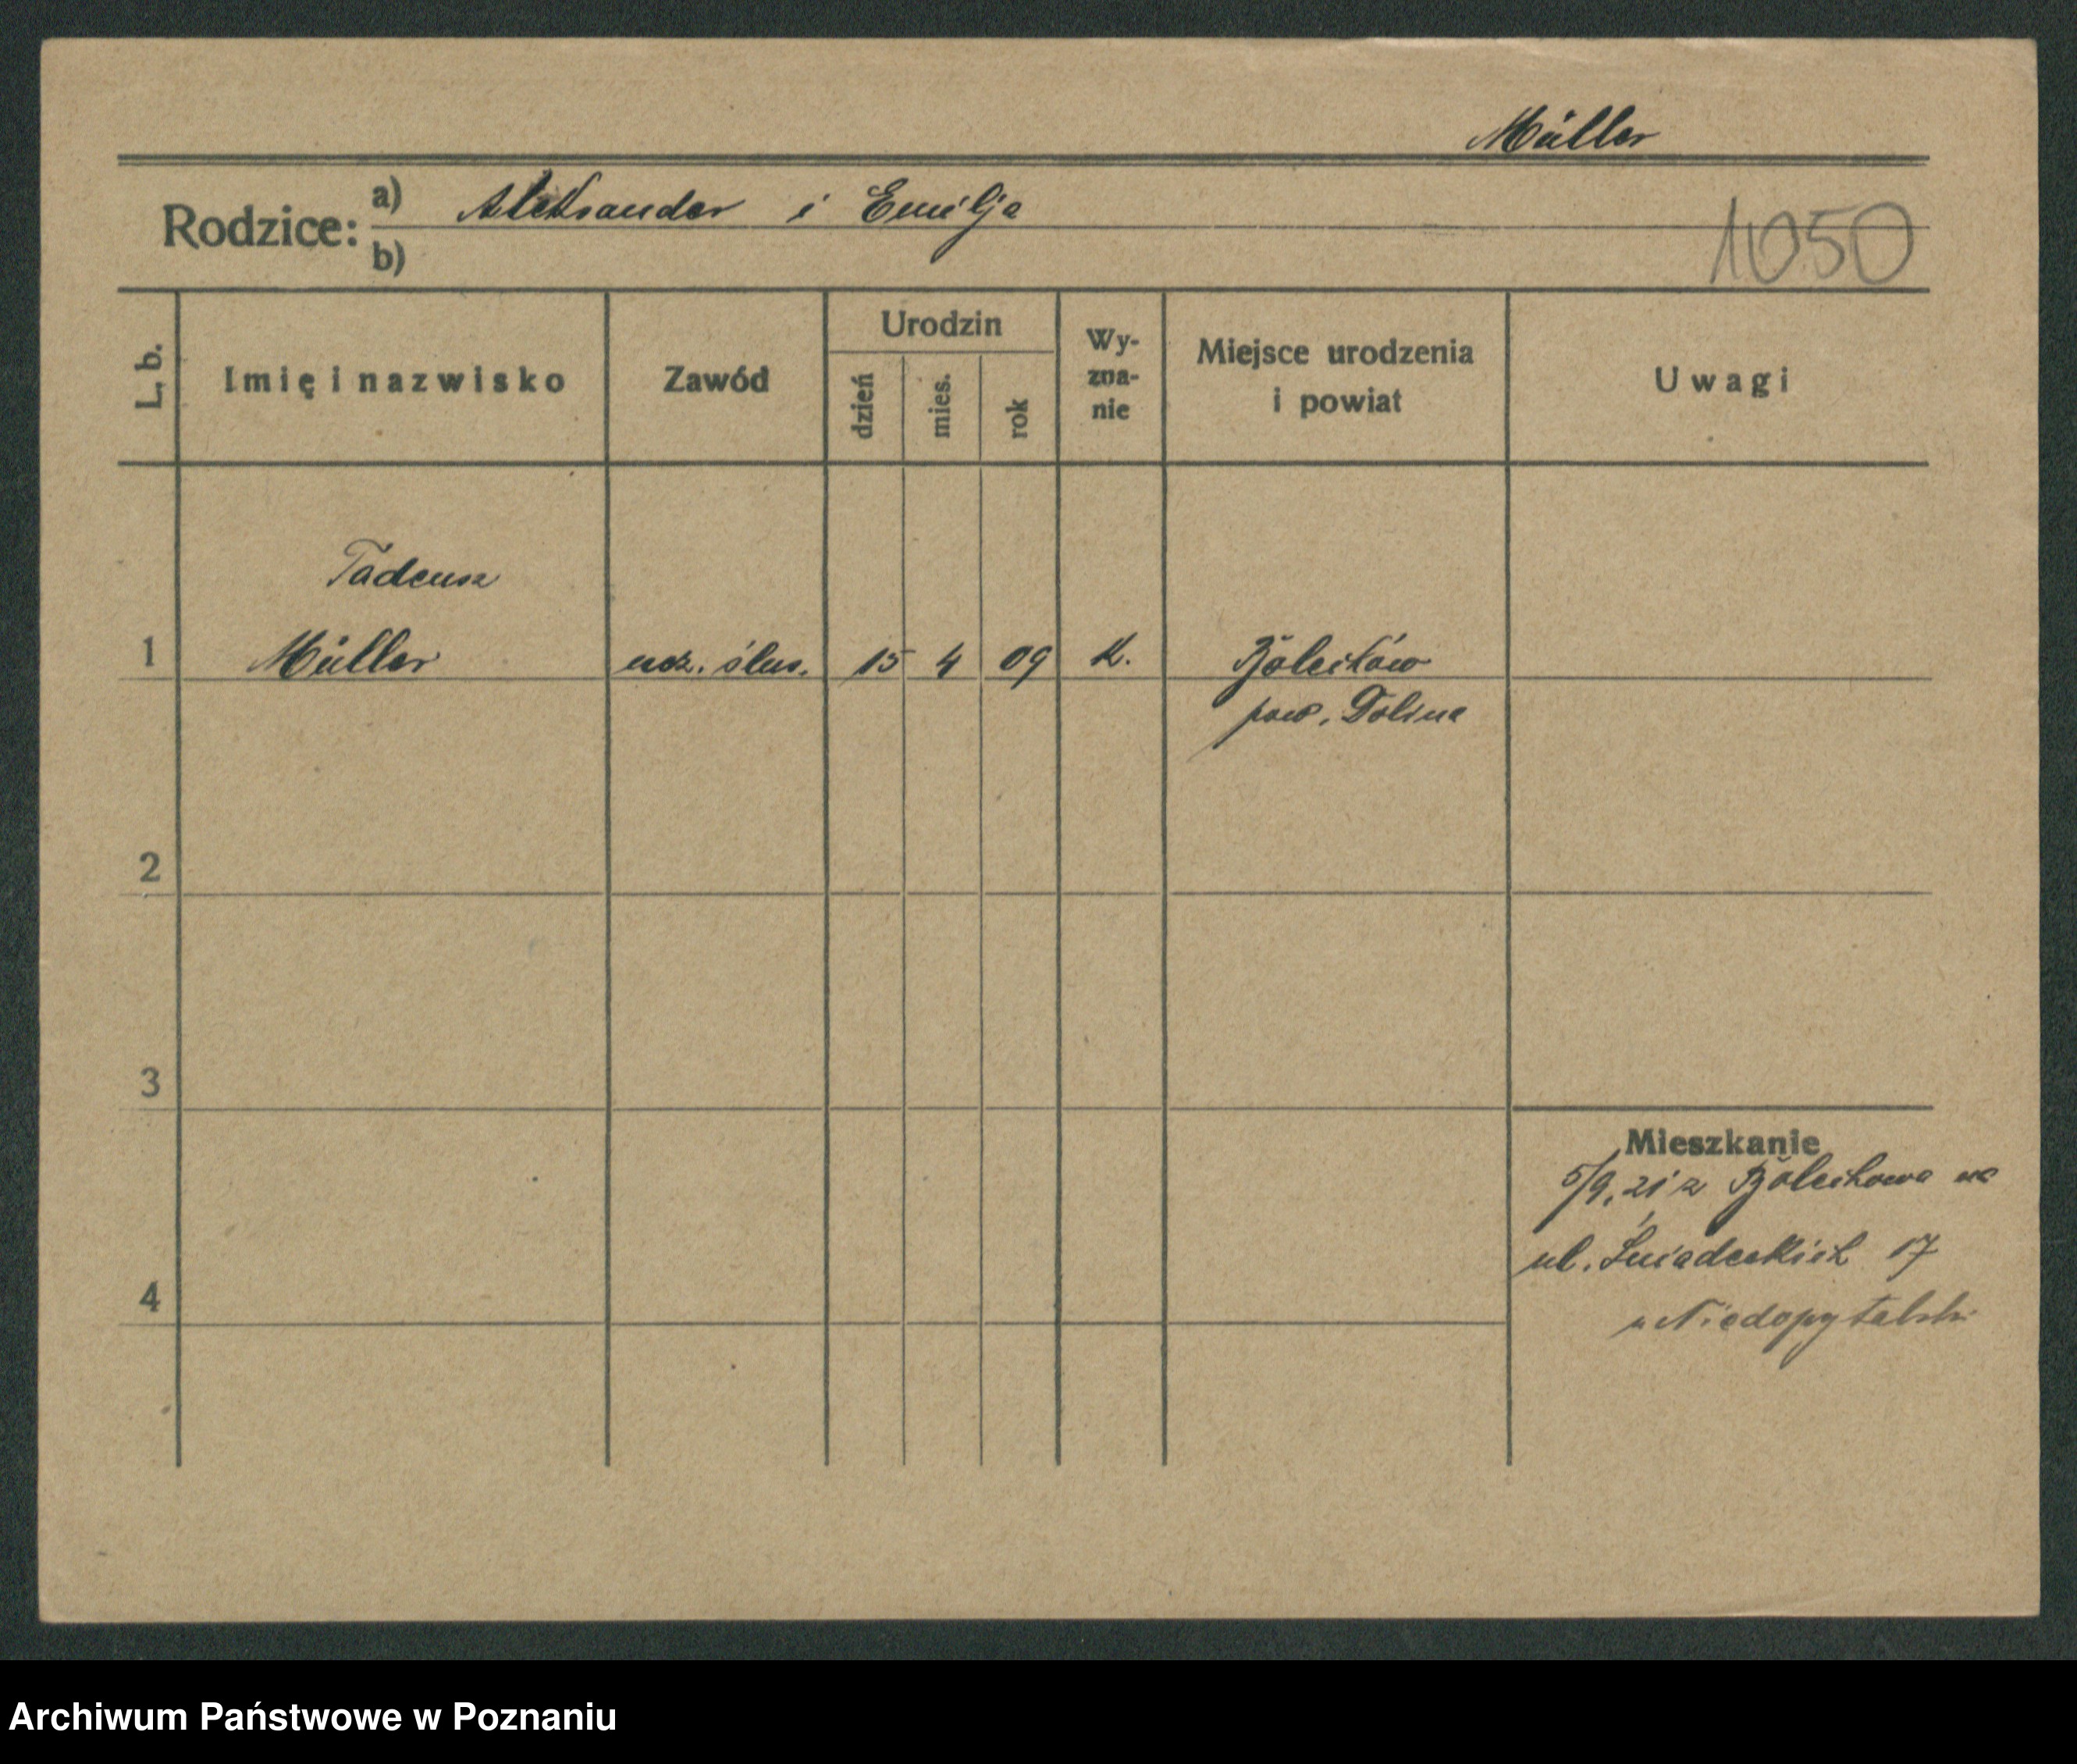 Müller
Rodzice:
a) Aleksander i Emilja
b)
1050
L. b.
Imię i nazwisko
Zawód
Urodzin
dzień
mies.
rok
Wy-
zna-
nie
Miejsce urodzenia
i powiat
Uwagi
Tadeusz
1 Müller ucz. ślus. 15 4 09 k. Bolechów
pow. Dolina
2
3
Mieszkanie
5/9. 21 z Bolechowa na
ul. Śniadeckich 17
4
u Niedopytalski
Archiwum Państwowe w Poznaniu